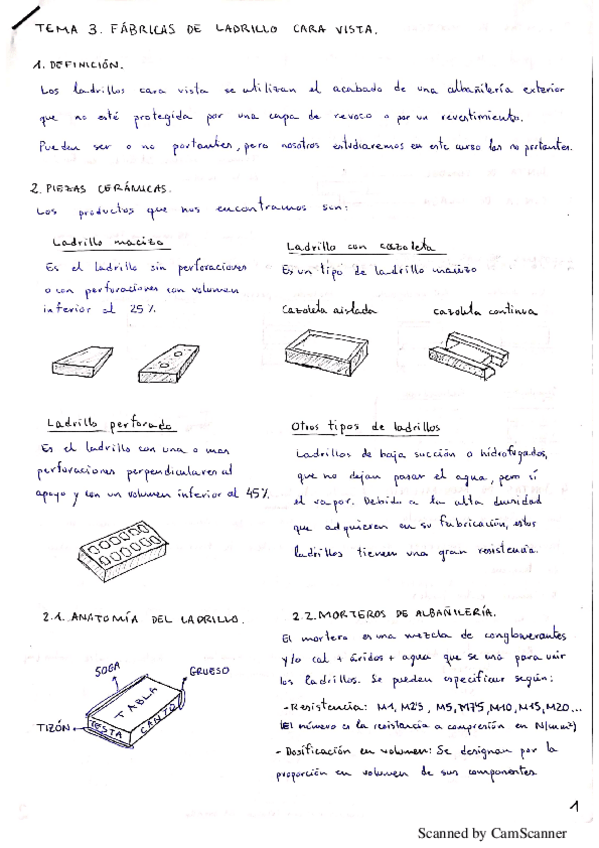 TEMA 3. FÁBRICAS DE LADRILLO CARA VISTA.
1. DEFINICIÓN.
Los ladrillos cara vista se utilizan el acabado de una albañilería exterior
que no esté protegida por una capa de revoco o por un revestimiento.
Pueden ser o no portantes, pero nosotros estudiaremos en este curso los no portantes.
2. PIEZAS CERÁMICAS.
Los productos que nos encontramos son:
Ladrillo macizo
Es el ladrillo sin perforaciones
o con perforaciones con volumen
inferior al 25%
Ladrillo con cazoleta
Es un tipo de ladrillo macizo
Cazoleta aislada
cazoleta continua
Ladrillo perforado
Es el ladrillo con una o mas
perforaciones perpendiculares al
apoyo y con un volumen inferior al 45%
Otros tipos de ladrillos
Ladrillos de baja succión o hidrofugados,
que no dejan pasar el agua, pero sí
el vapor. Debido a la alta densidad
que adquieren en su fabricación, estos
ladrillos tienen una gran resistencia.
2.1. ANATOMÍA DEL LADRILLO.
SOGA
GRUESO
TABLA
TIZÓN
TESTA
CANTO
2.2. MORTEROS DE ALBAÑILERÍA.
El mortero es una mezcla de conglomerantes
y/o cal + áridos + agua que se usa para unir
los ladrillos. Se pueden especificar según:
- Resistencia: M1, M2'5, M5, M7'5, M10, M15, M20...
(El número es la resistancia a compresión en N/mm²)
- Dosificación en volumen: Se designan por la
proporción en volumen de sus componentes
1
Scanned by CamScanner